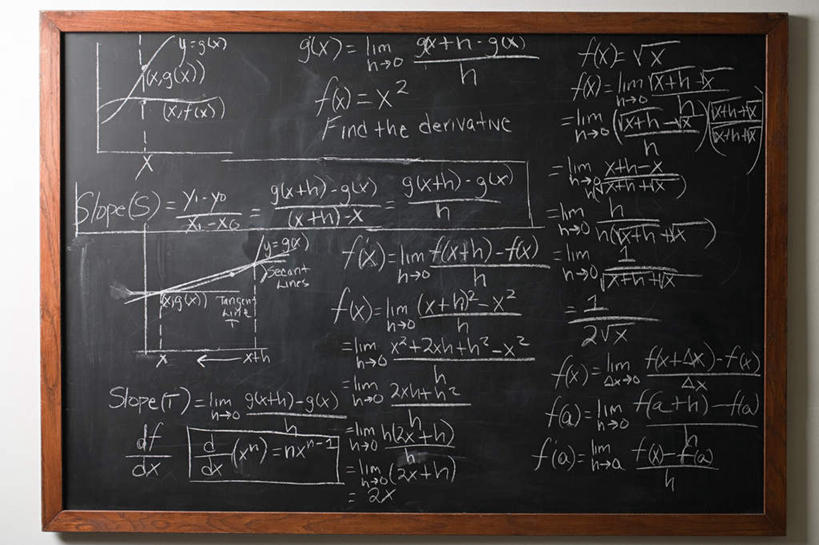 y=g(x)
(x,g(x))
(x,f(x))
X
g'(x) = lim h→0 g(x+h - g(x) / h
f(x) = x²
Find the derivative
Slope(S) = y₁-y₀ / x₁-x₀ = g(x+h)-g(x) / (x+h)-x = g(x+h)-g(x) / h
y=g(x)
Secant
Lines
(x,g(x))
Tangent
Line
T
x ← x+h
Slope(T) = lim h→0 g(x+h)-g(x) / h
df/dx
d/dx (xⁿ) = nxⁿ⁻¹
f'(x) = lim h→0 f(x+h)-f(x) / h
f(x) = lim h→0 (x+h)²-x² / h
= lim h→0 x²+2xh+h²-x² / h
= lim h→0 2xh+h² / h
= lim h→0 h(2x+h) / h
= lim h→0 (2x+h)
= 2x
f(x) = √x
f(x) = lim h→0 √x+h-√x / h
= lim h→0 (√x+h-√x / h)(√x+h+√x / √x+h+√x)
= lim h→0 x+h-x / h(√x+h+√x)
= lim h→0 h / h(√x+h+√x)
= lim h→0 1 / √x+h+√x
= 1 / 2√x
f(x) = lim Δx→0 f(x+Δx)-f(x) / Δx
f(a) = lim h→0 f(a+h)-f(a) / h
f'(a) = lim h→a f(x)-f(a) / h